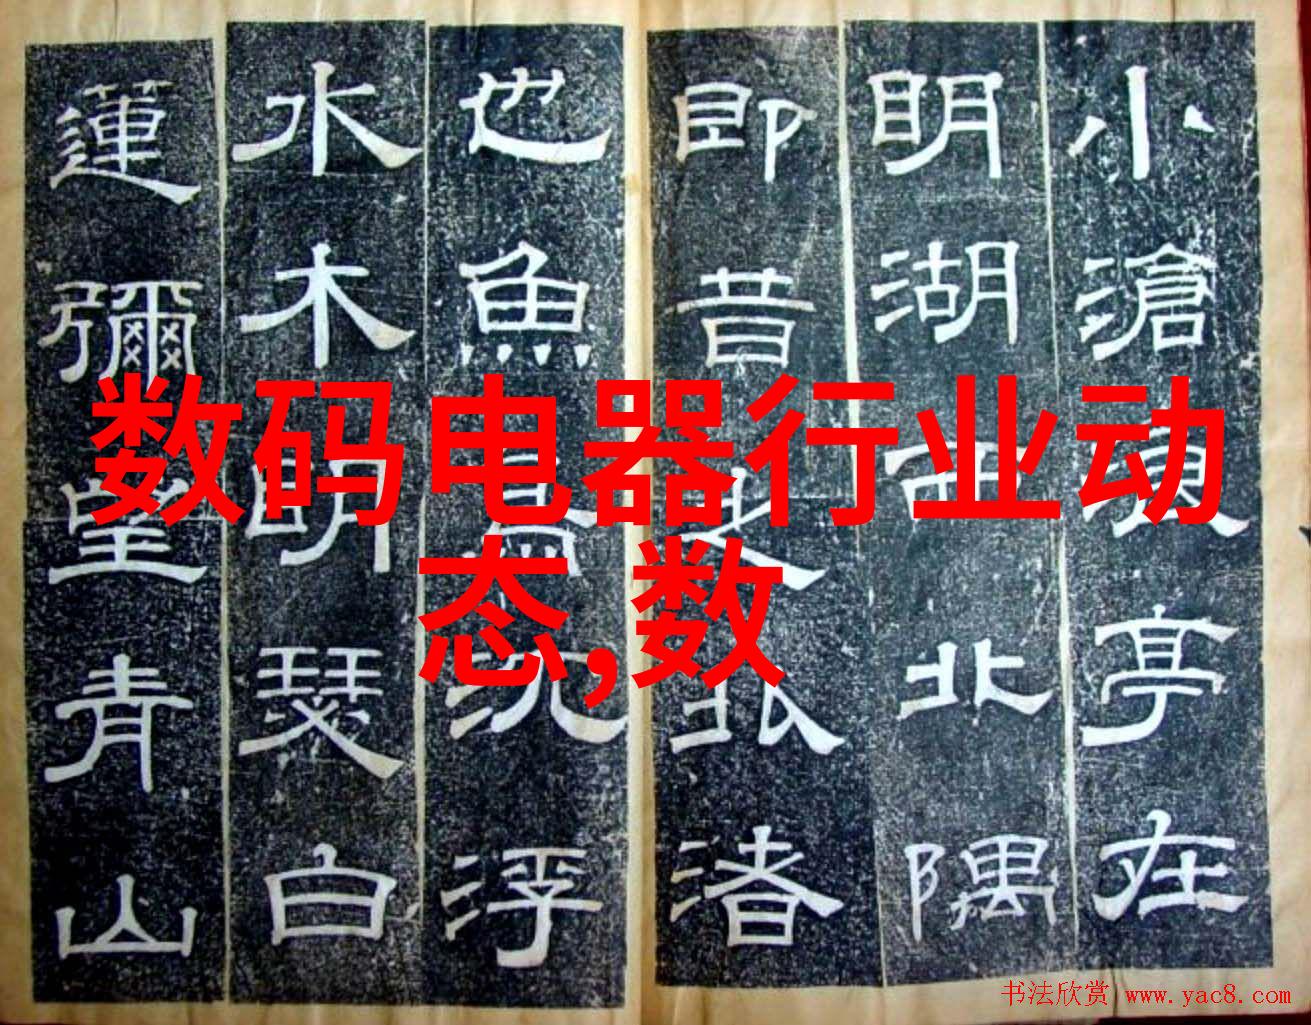 小滄浪亭在
明湖西北隅
即昔之北渚
也魚鳥沉浮
水木明瑟白
蓮彌望青山
数码电器行业动
态,数
书法欣赏 www.yac8.com